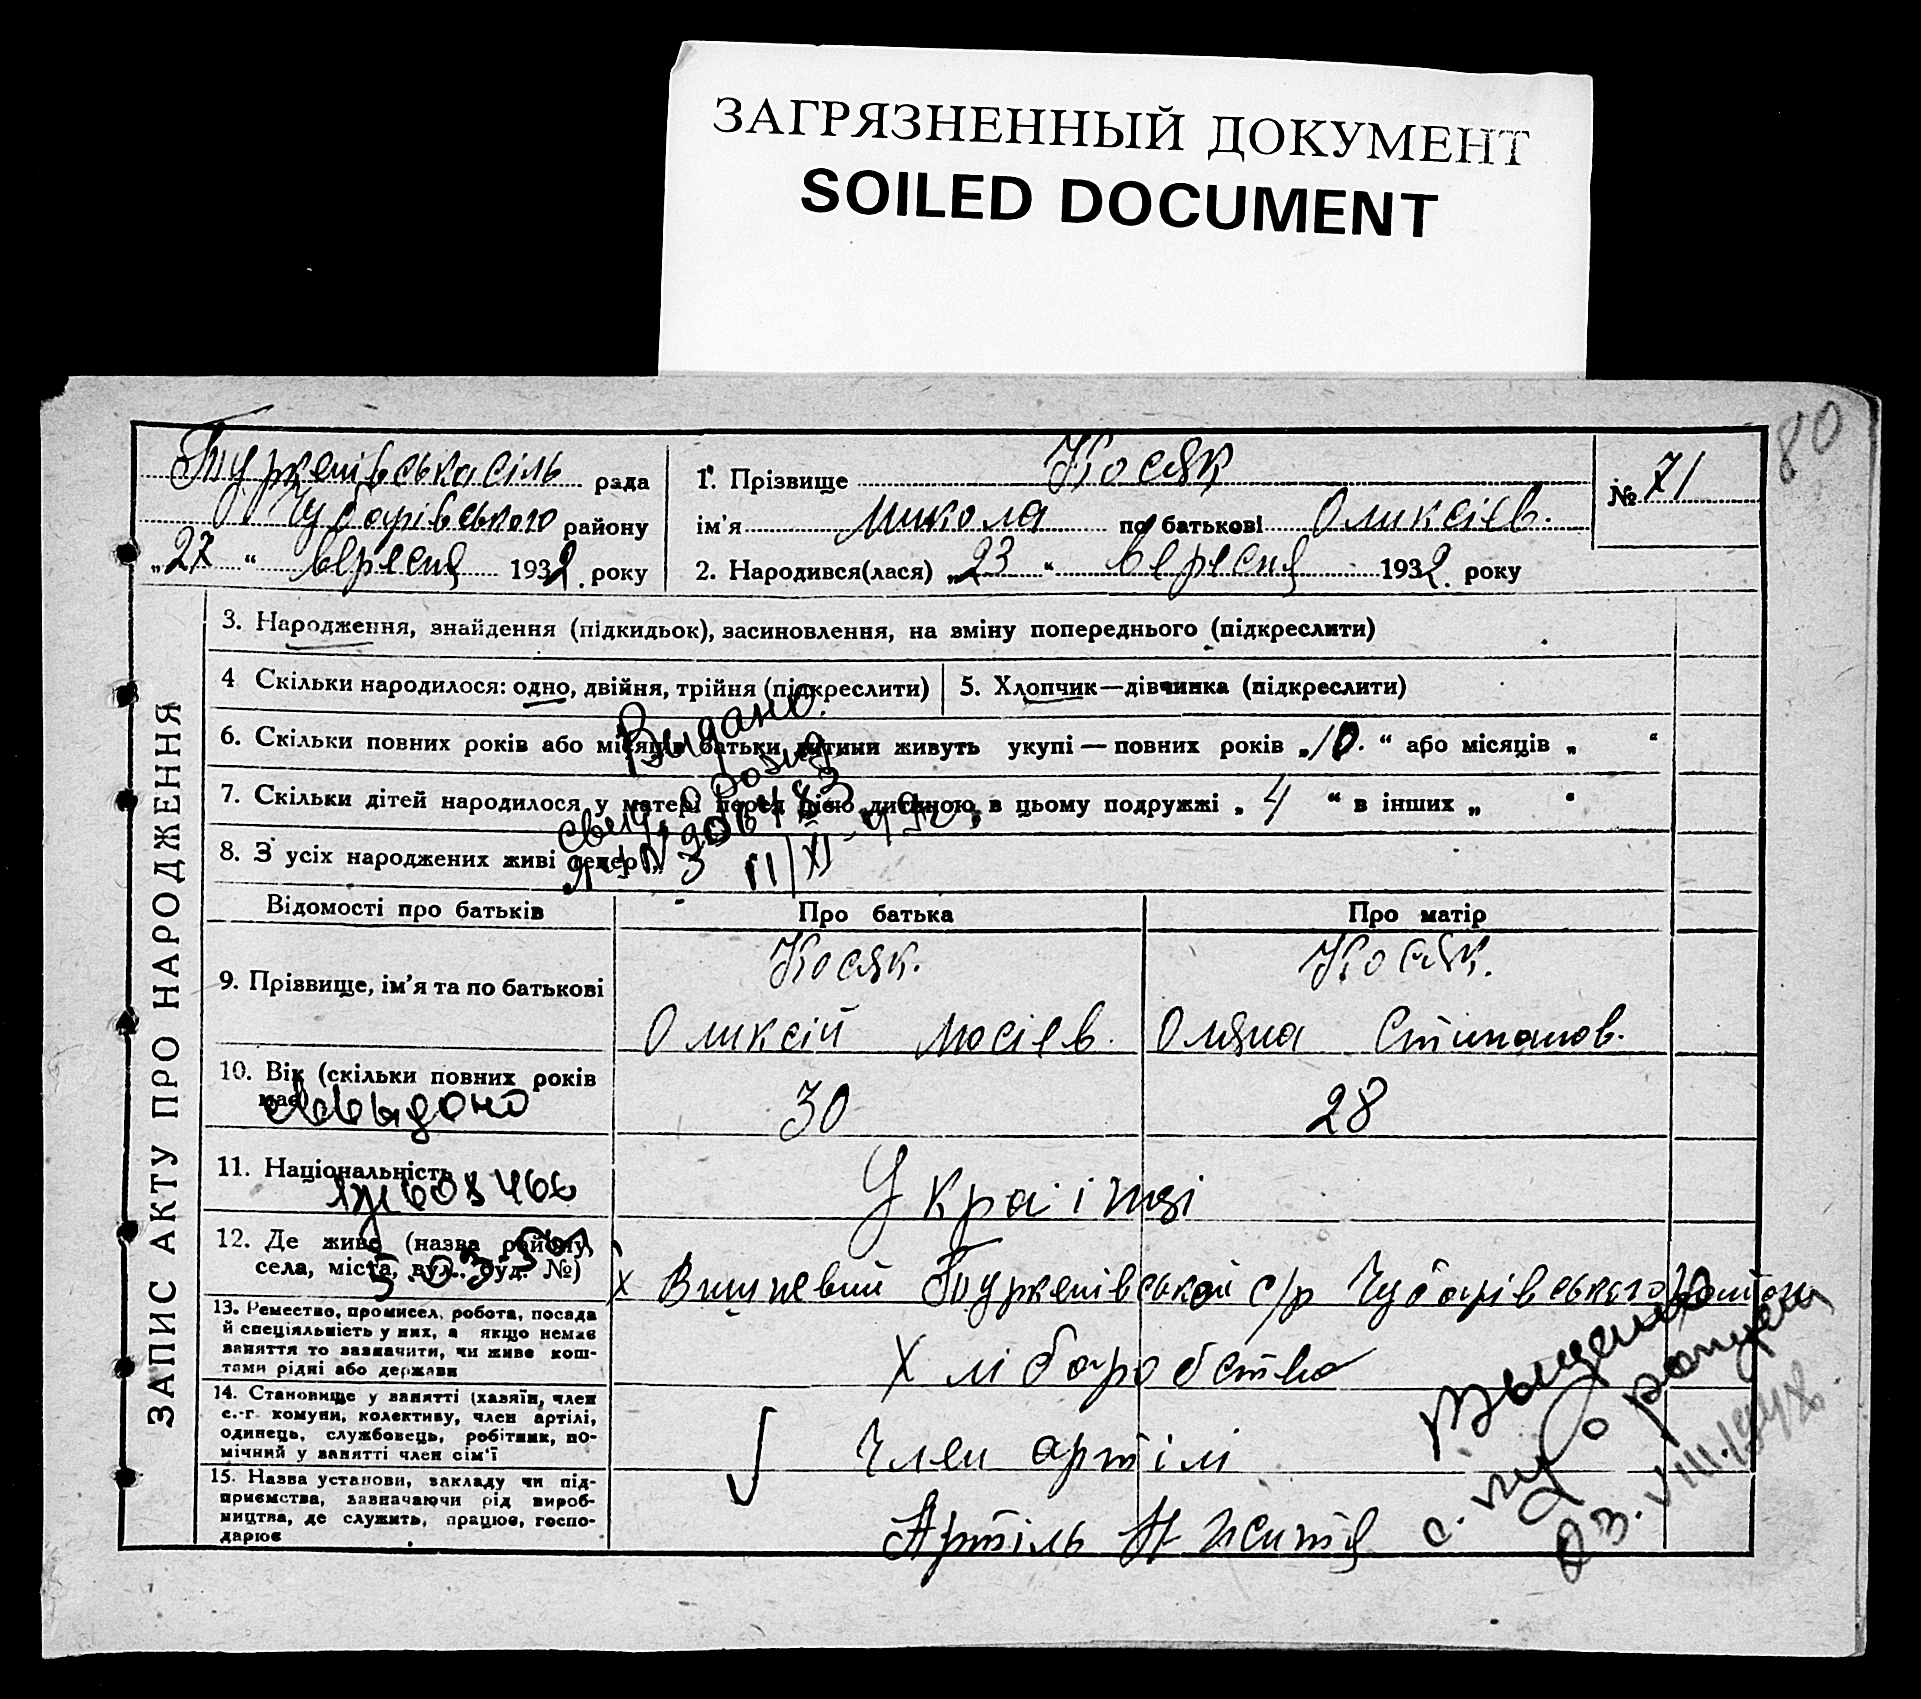 ЗАГРЯЗНЕННЫЙ ДОКУМЕНТ
SOILED DOCUMENT
80
Туркенівська сіль рада
Чубарівського району
„27“ вересня 1932 року
1. Прізвище Косяк
ім'я Микола по батькові Оликсієв.
2. Народився(лася) „23“ вересня 1932 року
№ 71
ЗАПИС АКТУ ПРО НАРОДЖЕННЯ
3. Народження, знайдення (підкидьок), засиновлення, на зміну попереднього (підкреслити)
4 Скільки народилося: одно, двійня, трійня (підкреслити)
5. Хлопчик—дівчинка (підкреслити)
6. Скільки повних років або місяців батьки дитини живуть укупі — повних років „10.“ або місяців „ “
7. Скільки дітей народилося у матері перед цією дитиною в цьому подружжі „ 4 “ в інших „ “
8. З усіх народжених живі тепер „ 3
Видано.
11/XI
Відомості про батьків
Про батька
Про матір
9. Прізвище, ім'я та по батькові
Косяк.
Оликсій Мосієв.
Косяк.
Оляна Стипанов.
10. Вік (скільки повних років має)
30
28
11. Національність
Українці
12. Де живе (назва району, села, міста, вул. буд. №)
х Вишневий Туркенівської с/р Чубарівського району
13. Ремество, промисел, робота, посада
й спеціяльність у них, а якщо немає
заняття то зазначити, чи живе кош-
тами рідні або держави
Хліборобство
14. Становище у занятті (хазяїн, член
с.-г. комуни, колективу, член артілі,
одинець, службовець, робітник, по-
мічний у занятті член сім'ї
Член артілі
15. Назва установи, закладу чи під-
приємства, зазначаючи рід вироб-
ництва, де служить, працює, госпо-
дарює
Артіль Н життя
03.VIII.1948